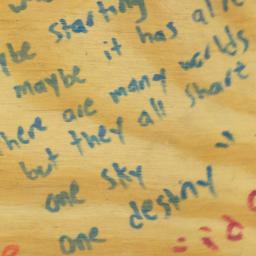 starting
maybe it has
there are many worlds
but they all share
one sky
one destiny